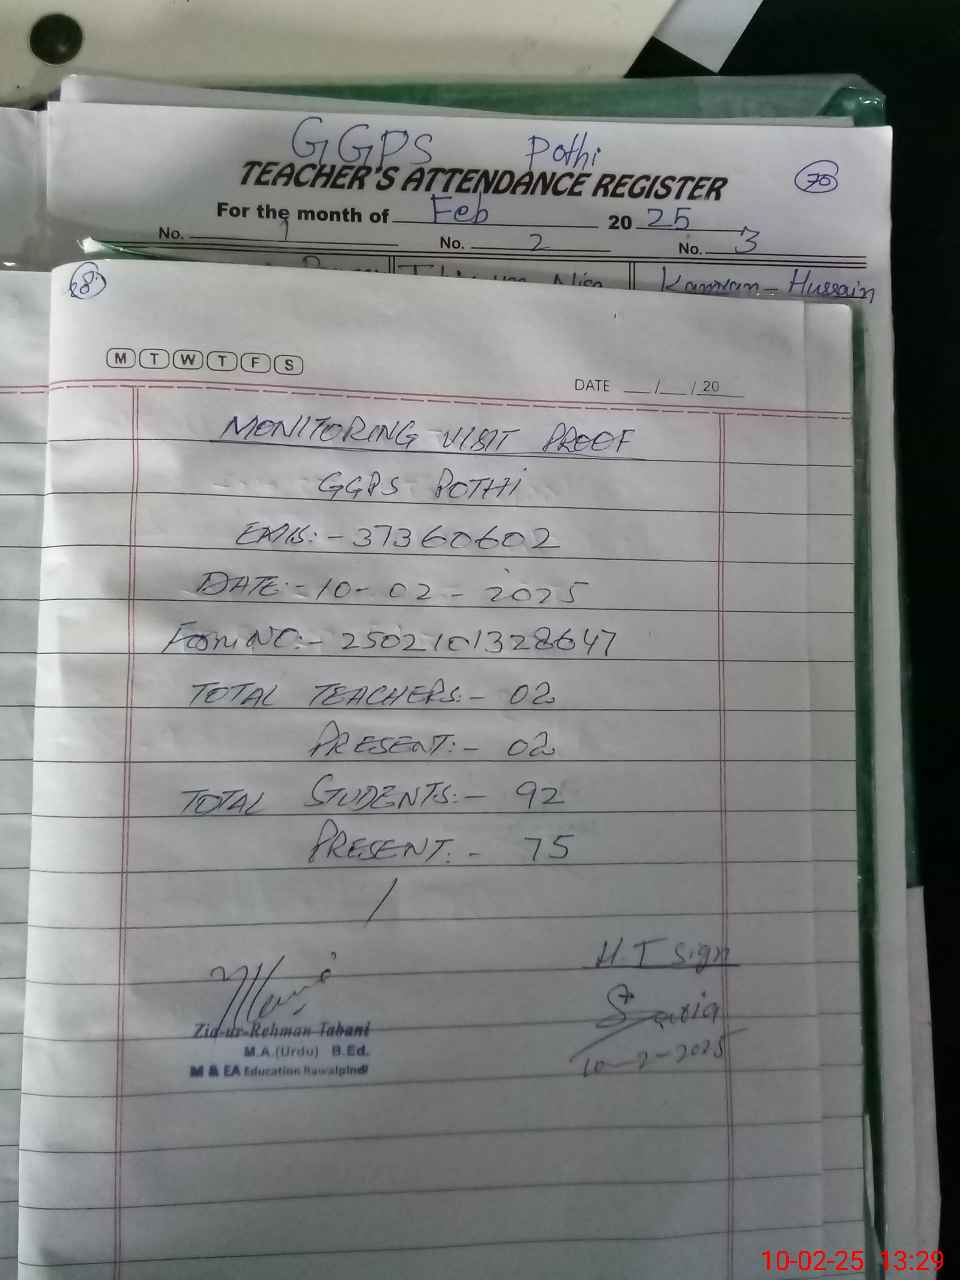 GGPS Pothi
TEACHER'S ATTENDANCE REGISTER
70
For the month of Feb 20 25
No. 1 No. 2 No. 3
Kamran - Hussain
68
M T W T F S
DATE __/__/20
MONITORING VISIT PROOF
GGPS POTHI
EMIS:- 37360602
DATE:- 10-02-2025
Form NO:- 2502101328647
TOTAL TEACHERS:- 02
PRESENT:- 02
TOTAL STUDENTS:- 92
PRESENT:- 75
/
H.T sign
Zia-ur-Rehman Tabani
M.A.(Urdu) B.Ed.
M & EA Education Rawalpindi
10-2-2025
10-02-25 13:29